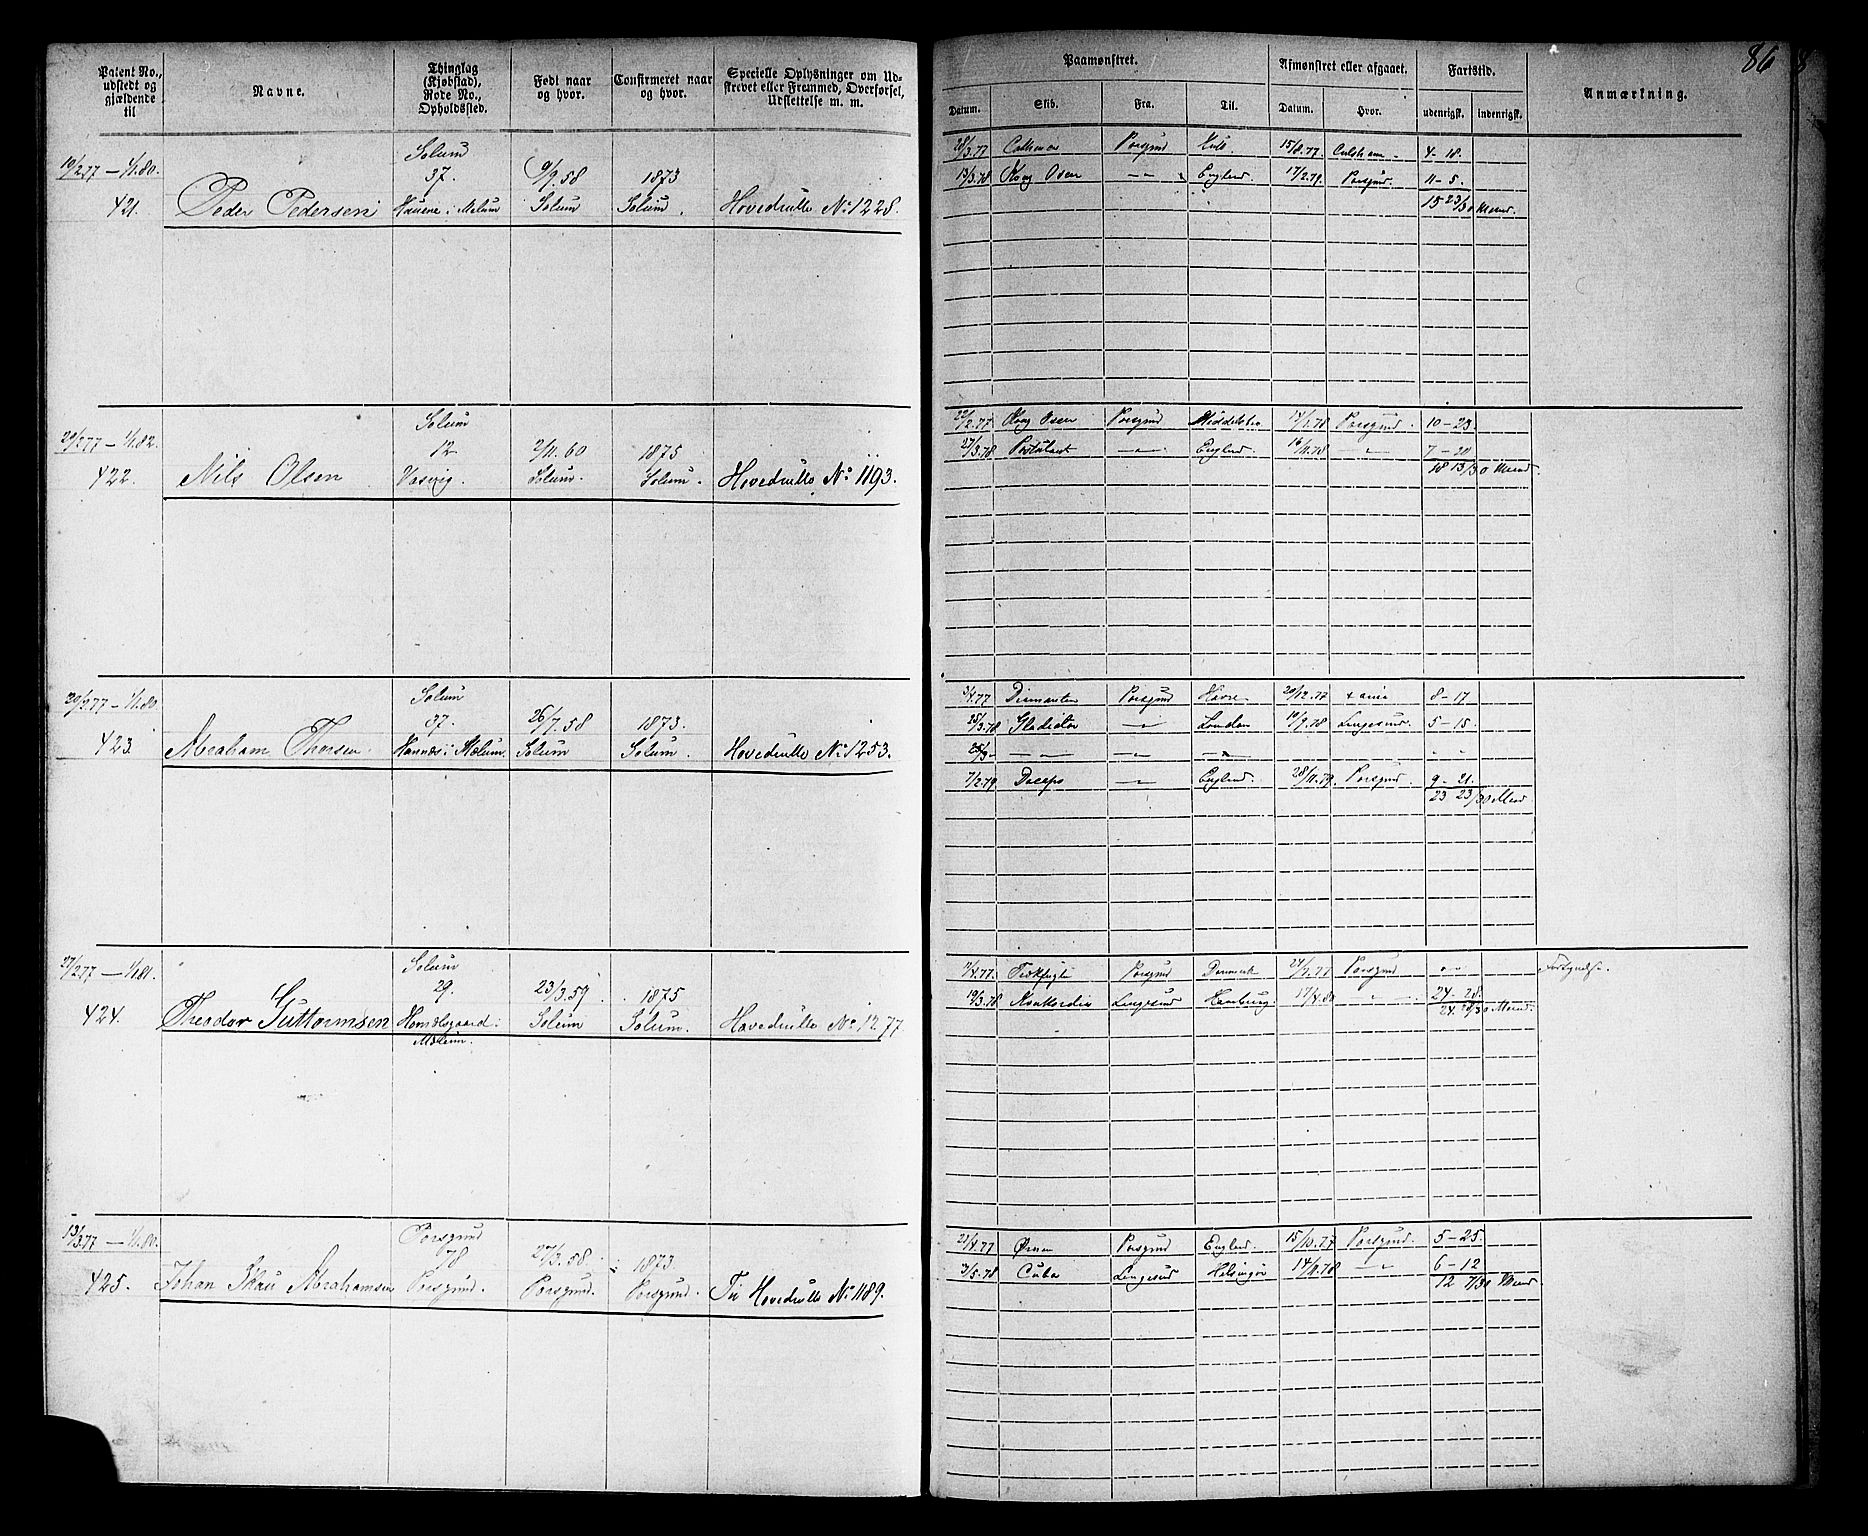 86
Patent No., udstedt og gjældende til
Navne.
Thinglag (Kjøbstad), Rode No., Opholdssted.
Født naar og hvor.
Confirmeret naar og hvor.
Specielle Oplysninger om Udskrevet eller Fremmed, Overførsel, Udslettelse m. m.
Paamønstret.
Afmønstret eller afgaaet.
Fartstid.
Anmærkning.
Datum. Skib. Fra. Til. Datum. Hvor. udenrigsk. indenrigsk.
10/2 77 — 1/1 80.
Solum
37. 9/9 58 1873
421. Peder Pedersen i Mælum Solum Solum. Hovedrulle No 1228.
28/3 77 Porsgrund Hull 15/8 77. 4 - 18.
13/3 78 Kong Osen — " — England. 17/2 79. Porsgrund. 11 - 5.
15 23/30 Maaned.
20/2 77 — 1/1 82.
Solum
12 2/11 60 1875
422. Nils Olsen Vasvig. Solum. Solum. Hovedrulle No 1193.
22/2 77 Kong Osen Porsgrund Middelsbro 14/1 78 Porsgrund. 10 - 23
27/3 78 — " — England. 16/11 78 — " — 7 - 20
18 13/30 Maaned
20/2 77 — 1/1 80
Solum
37. 26/7 58 1873.
423. Abraham Thorsen. Havnæs i Mælum Solum Solum. Hovedrulle No 1253.
3/4 77 Diamanten Porsgrund Havre 20/12 77 8 - 17
25/3 78 Gladiator — " — London 10/9 78 Langesund. 5 - 15.
25/9 — " — — " — — " —
7/2 79 — " — England. 28/11 79. Porsgrund 9 - 21.
23 23/30 Maaned
27/2 77 — 1/1 81.
Solum
29. 23/3 59 1875
424. Theodor Guttormsen i Solum Solum. Hovedrulle No 1277
Mælum.
7/4 77. Porsgrund Danmark 24/9 77 Porsgrund Forlydelse.
19/3 78 Konkordia Langesund Hamburg. 17/4 80 " 24 - 28.
24 28/30 Maaned.
13/3 77 — 1/1 80.
Porsgrund
78 27/3 58. 1873.
425. Johan Skau Abrahamsen Porsgrund. Porsgrund. Porsgrund. Til Hovedrulle No 1189.
21/4 77 Ørnen Porsgrund England. 15/10 77 Porsgrund. 5 - 25.
3/5 78 Cuba Langesund Helsingør 14/11 78 — " — 6 - 12
12 7/30 Maaned